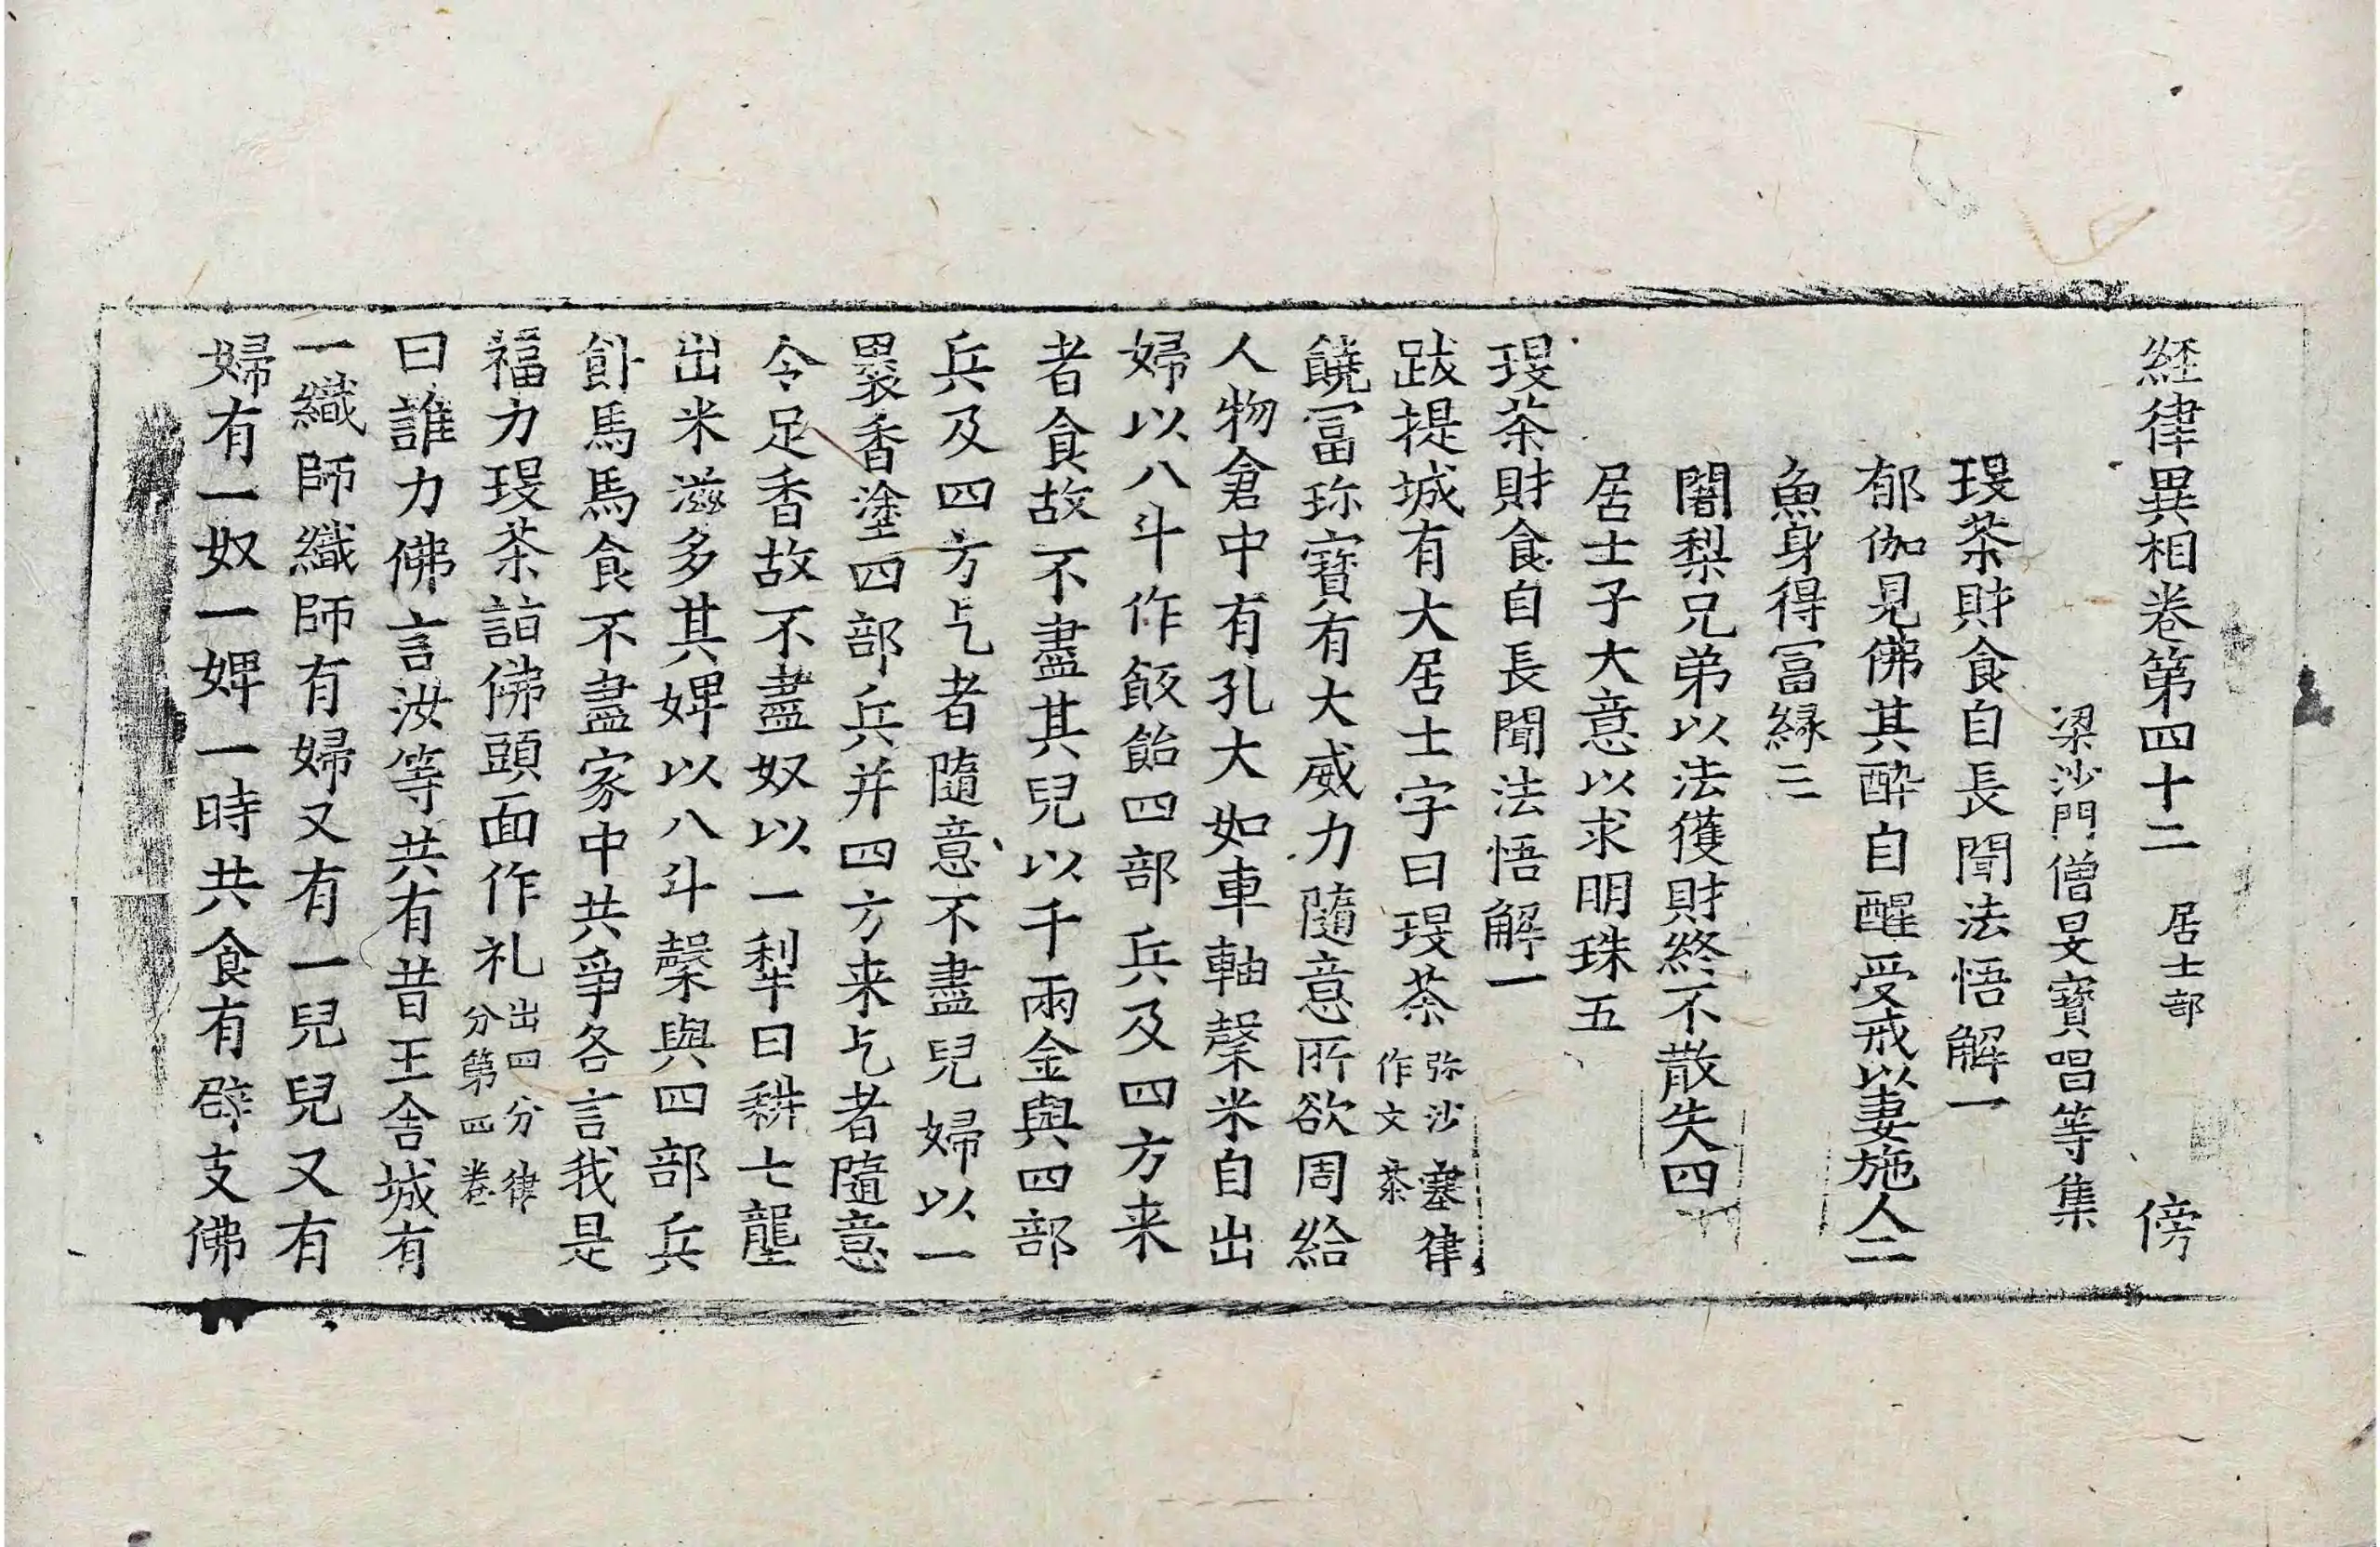 経律異相卷第四十二 居士部 傍
梁沙門僧旻寶唱等集
琝茶財食自長聞法悟解一
郁伽見佛其酔自醒受戒以妻施人二
魚身得冨緣三
闍梨兄弟以法獲財終不散失四
居士子大意以求明珠五
琝茶財食自長聞法悟解一
跋提城有大居士字曰琝茶 弥沙塞律作文茶
饒冨珎寶有大威力隨意所欲周給
人物倉中有孔大如車軸穀米自出
婦以八斗作飯飴四部兵及四方来
者食故不盡其兒以千兩金與四部
兵及四方乞者隨意不盡兒婦以一
褁香塗四部兵并四方来乞者隨意
令足香故不盡奴以一犁日耕七壟
出米滋多其婢以八斗穀與四部兵
飼馬馬食不盡家中共爭各言我是
福力琝茶詣佛頭面作礼 出四分律分第四卷
曰誰力佛言汝等共有昔王舍城有
一織師織師有婦又有一兒兒又有
婦有一奴一婢一時共食有辟支佛